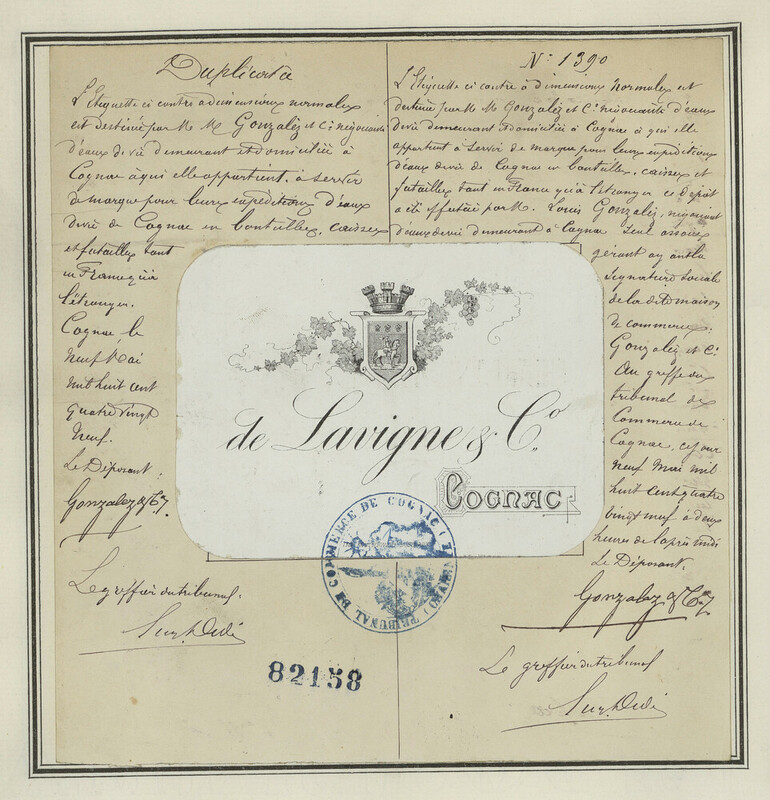 Duplicata
L'Etiquette ci contre à dimensions normales
est destinée par M M Gonzalèz et Cie négociants
d'eaux de vie demeurant et domiciliés à
Cognac à qui elle appartient, à servir
de marque pour leurs expéditions d'eaux
de vie de Cognac en bouteilles, caisses
et futailles tant
en France qu'à
l'étranger.
Cognac, le
neuf Mai
mil huit cent
quatre vingt
neuf.
Le Déposant.
Gonzalez & Cie
Le greffier du tribunal.
No 1390
L'Etiquette ci contre à dimensions normales est
destinée par M M Gonzalèz et Cie négociants d'eaux
de vie demeurant et domiciliés à Cognac à qui elle
appartient à servir de marque pour leurs expéditions
d'eaux de vie de Cognac en bouteilles, caisses et
futailles tant en France qu'à l'étranger ce dépôt
a été effectué par M. Louis Gonzalèz, négociant
d'eaux de vie demeurant à Cognac seul associé
gérant ayant la
signature sociale
de la dite maison
de commerce.
Gonzalèz et Cie
Au greffe du
tribunal de
Commerce de
Cognac, ce jour
neuf Mai mil
huit cent quatre
vingt neuf à deux
heures de l'après midi
Le Déposant.
Gonzalez & Cie
Le greffier du tribunal
de Lavigne & Co.
COGNAC
TRIBUNAL DE COMMERCE DE COGNAC
82158